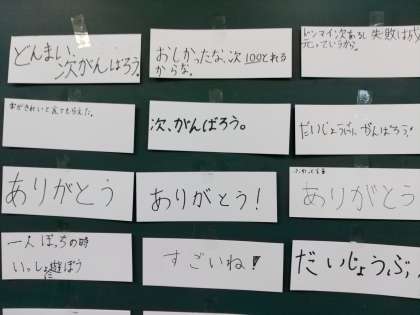 どんまい、
次がんばろう。
おしかったな、次100とれる
からな。
ドンマイ次あるし失敗は成
元っていうから。
字がきれいと言ってもらえた。
次、がんばろう。
だいじょうぶ、がんばろう!
ありがとう
ありがとう!
ありがとう
一人ぼっちの時
いっしょ遊ぼう
に
すごいね!
だいじょうぶ、